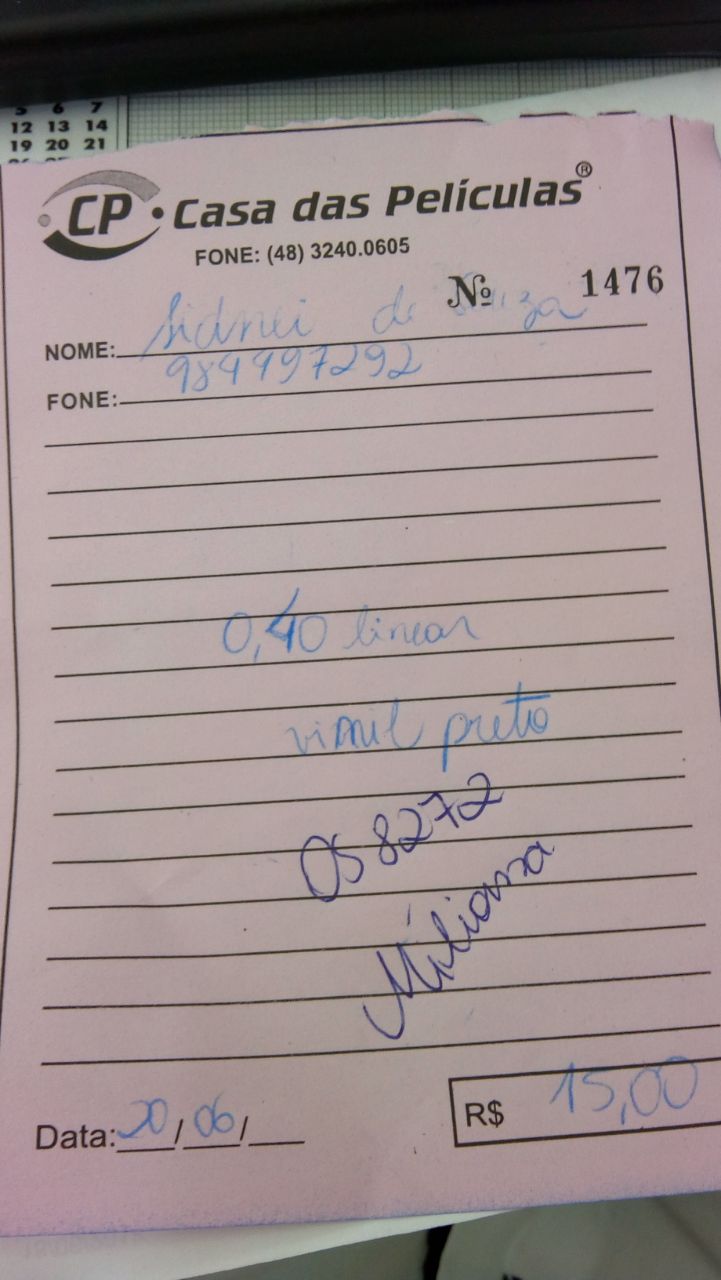 5 6 7
12 13 14
19 20 21
CP • Casa das Películas®
FONE: (48) 3240.0605
Nº 1476
NOME: Sidnei de Souza
FONE: 984497292
0,40 linear
vinil preto
OS 8272
Data: 20/06/
R$ 15,00